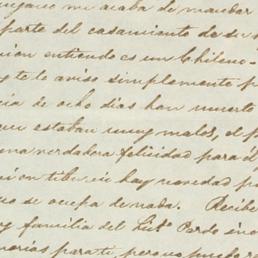 me acaba de mandar
parte del casamiento de su
entiendo es un Chileno
y te lo aviso simplemente p
cia de ocho dias han muerto
que estaban muy malos, el p
una verdadera felicidad para él
hay novedad p
se ocupa de nada. Recibe
y familia del Pardo
para ti, pero